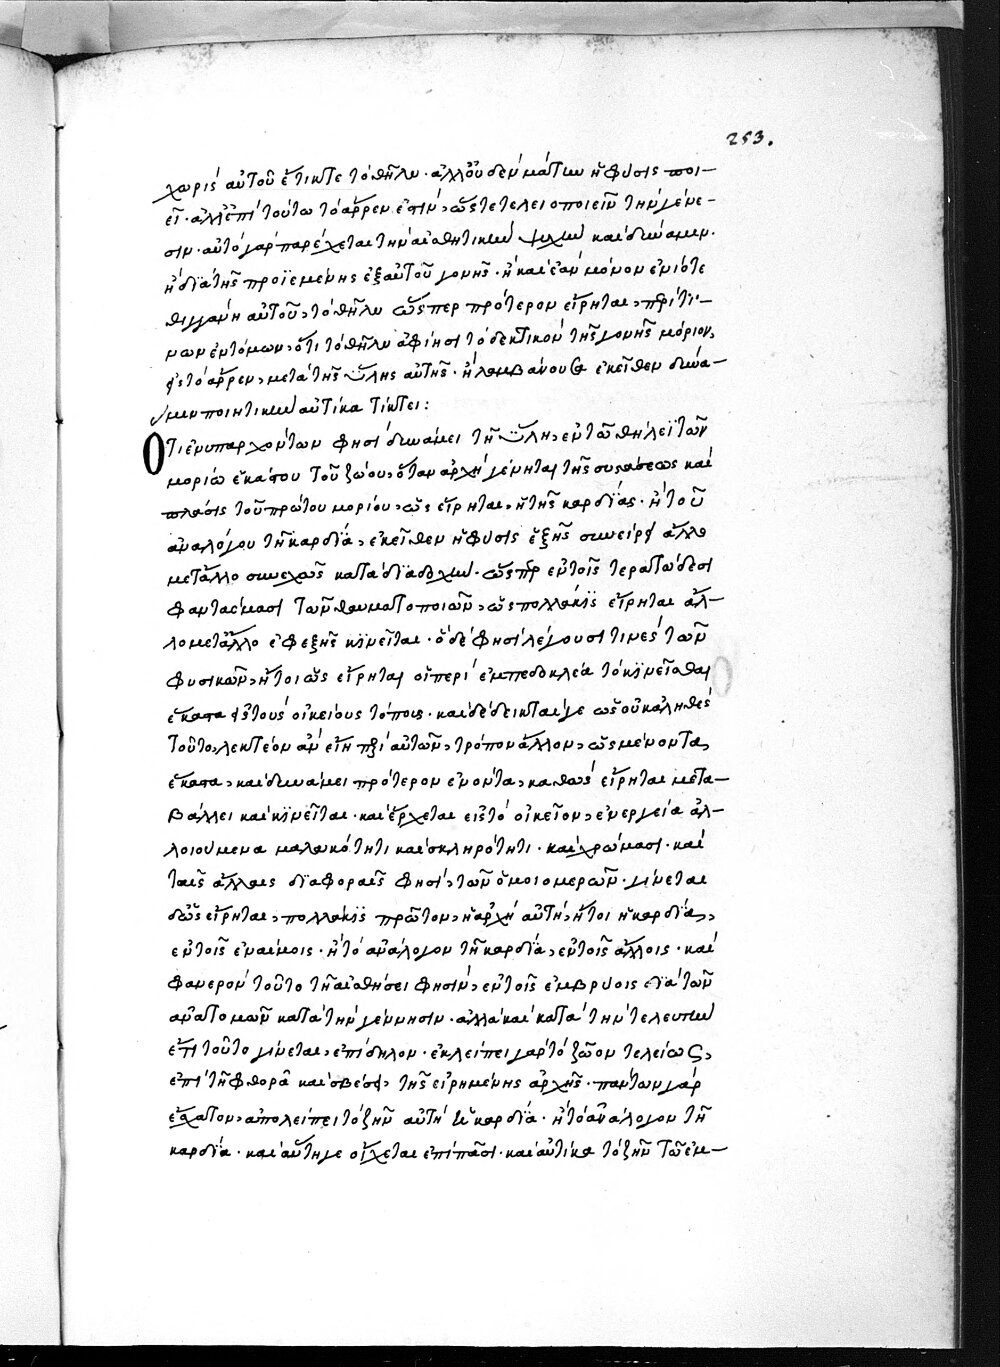 253.
χωρὶς αὐτοῦ ἔτικτε τὸ θῆλυ· ἀλλ' οὐδὲν μάτην ἡ φύσις ποι-
εῖ· ἀλλ' ἐπὶ τούτω τὸ ἄρρεν ἐστὶν, ὥστε τελειοποιεῖν τὴν γένε-
σιν· αὐτὸ γὰρ παρέχεται τὴν αἰσθητικὴν ψυχὴν καὶ δύναμιν·
ἢ διὰ τῆς προϊεμένης ἐξ αὐτοῦ γονῆς· ἢ καὶ ἐὰν μόνον ἐνίοτε
θιγγάνη αὐτοῦ, τὸ θῆλυ ὥσπερ πρότερον εἴρηται, περί τι-
νων ἐντόμων, ὅτι τὸ θῆλυ ἀφίησι τὸ δεκτικὸν τῆς γονῆς μόριον,
εἰς τὸ ἄρρεν, μετὰ τῆς ὕλης αὐτῆς· ἢ λαμβάνουσα ἐκεῖθεν δύνα-
μιν ποιητικὴν αὐτίκα τίκτει:
Ὅτι ἐνυπαρχόντων φησὶ δυνάμει τῆ ὕλη, ἐν τῶ θήλεϊ τῶν
μορίων ἑκάστου τοῦ ζώου, ὅταν ἀρχὴ γένηται τῆς συστάσεως καὶ
πλάσις τοῦ πρώτου μορίου, ὡς εἴρηται, ἢ τῆς καρδίας· ἢ τοῦ
ἀναλόγου τῆ καρδία, ἐκεῖθεν ἡ φύσις ἑξῆς συνείρει ἄλλο
μετ' ἄλλο συνεχῶς κατὰ διαδοχὴν· ὥσπερ ἐν τοῖς τερατώδεσι
φαντάσμασι τῶν θαυματοποιῶν, ὡς πολλάκις εἴρηται ἄλ-
λο μετ' ἄλλο ἐφεξῆς κινεῖται· ὃ δέ φησι λέγουσί τινες τῶν
φυσικῶν, ἤτοι ὡς εἴρηται οἱ περὶ ἐμπεδοκλέα τὸ κινεῖσθαι
ἕκαστα εἰς τοὺς οἰκείους τόπους· καὶ δέδεικταί γε ὡς οὐκ ἀληθὲς
τοῦτο, λεκτέον ἂν εἴη περὶ αὐτῶν, τρόπον ἄλλον, ὡς μένοντα,
ἕκαστα, καὶ δυνάμει πρότερον ἐνόντα, καθὼς εἴρηται μετα-
βάλλει καὶ κινεῖται· καὶ ἔρχεται εἰς τὸ οἰκεῖον, ἐνεργεία ἀλ-
λοιούμενα μαλακότητι καὶ σκληρότητι· καὶ χρώμασι· καὶ
ταῖς ἄλλαις διαφοραῖς φησὶ, τῶν ὁμοιομερῶν· γίνεται
δ' ὡς εἴρηται, πολλάκις πρῶτον, ἡ ἀρχὴ αὐτὴ, ἤτοι ἡ καρδία,
ἐν τοῖς ἐναίμοις· ἢ τὸ ἀνάλογον τῆ καρδία, ἐν τοῖς ἄλλοις· καὶ
φανερὸν τοῦτο τῆ αἰσθήσει φησὶν, ἐν τοῖς ἐμβρύοις διὰ τῶν
ἀνατομῶν κατὰ τὴν γέννησιν· ἀλλὰ καὶ κατὰ τὴν τελευτὴν
ἔτι τοῦτο γίνεται, ἐπίδηλον· ἐκλείπει γὰρ τὸ ζῶον τελείως,
ἐπὶ τῆ φθορᾶ καὶ σβέσει, τῆς εἰρημένης ἀρχῆς· πάντων γὰρ
ἔσχατον, ἀπολείπει τὸ ζῆν αὐτὴ ἡ καρδία· ἢ τὸ ἀνάλογον τῆ
καρδία· καὶ αὕτη γε οἴχεται ἐπὶ πᾶσι· καὶ αὐτίκα τὸ ζῆν τῶ ἐμ-